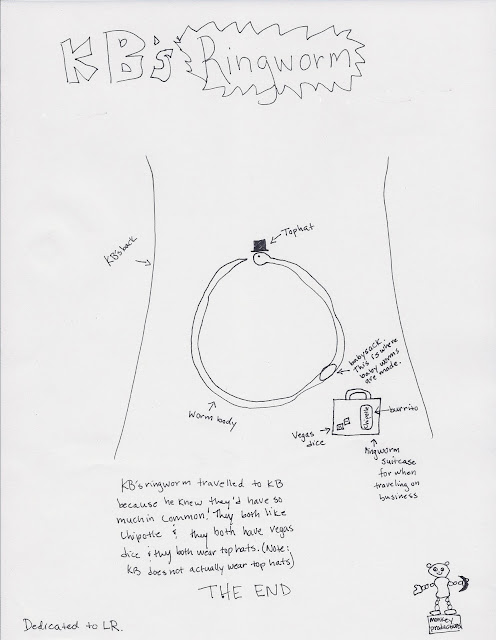 KB's Ringworm
Tophat
KB's back
babysack.
This is where
baby worms
are made.
Worm body
Chipotle
burrito
Vegas
dice
Ringworm
suitcase
for when
traveling on
business
KB's ringworm travelled to KB
because he knew they'd have so
much in common! They both like
Chipotle & they both have Vegas
dice & they both wear top hats. (Note:
KB does not actually wear top hats)
THE END
Dedicated to LR.
monkey
productions